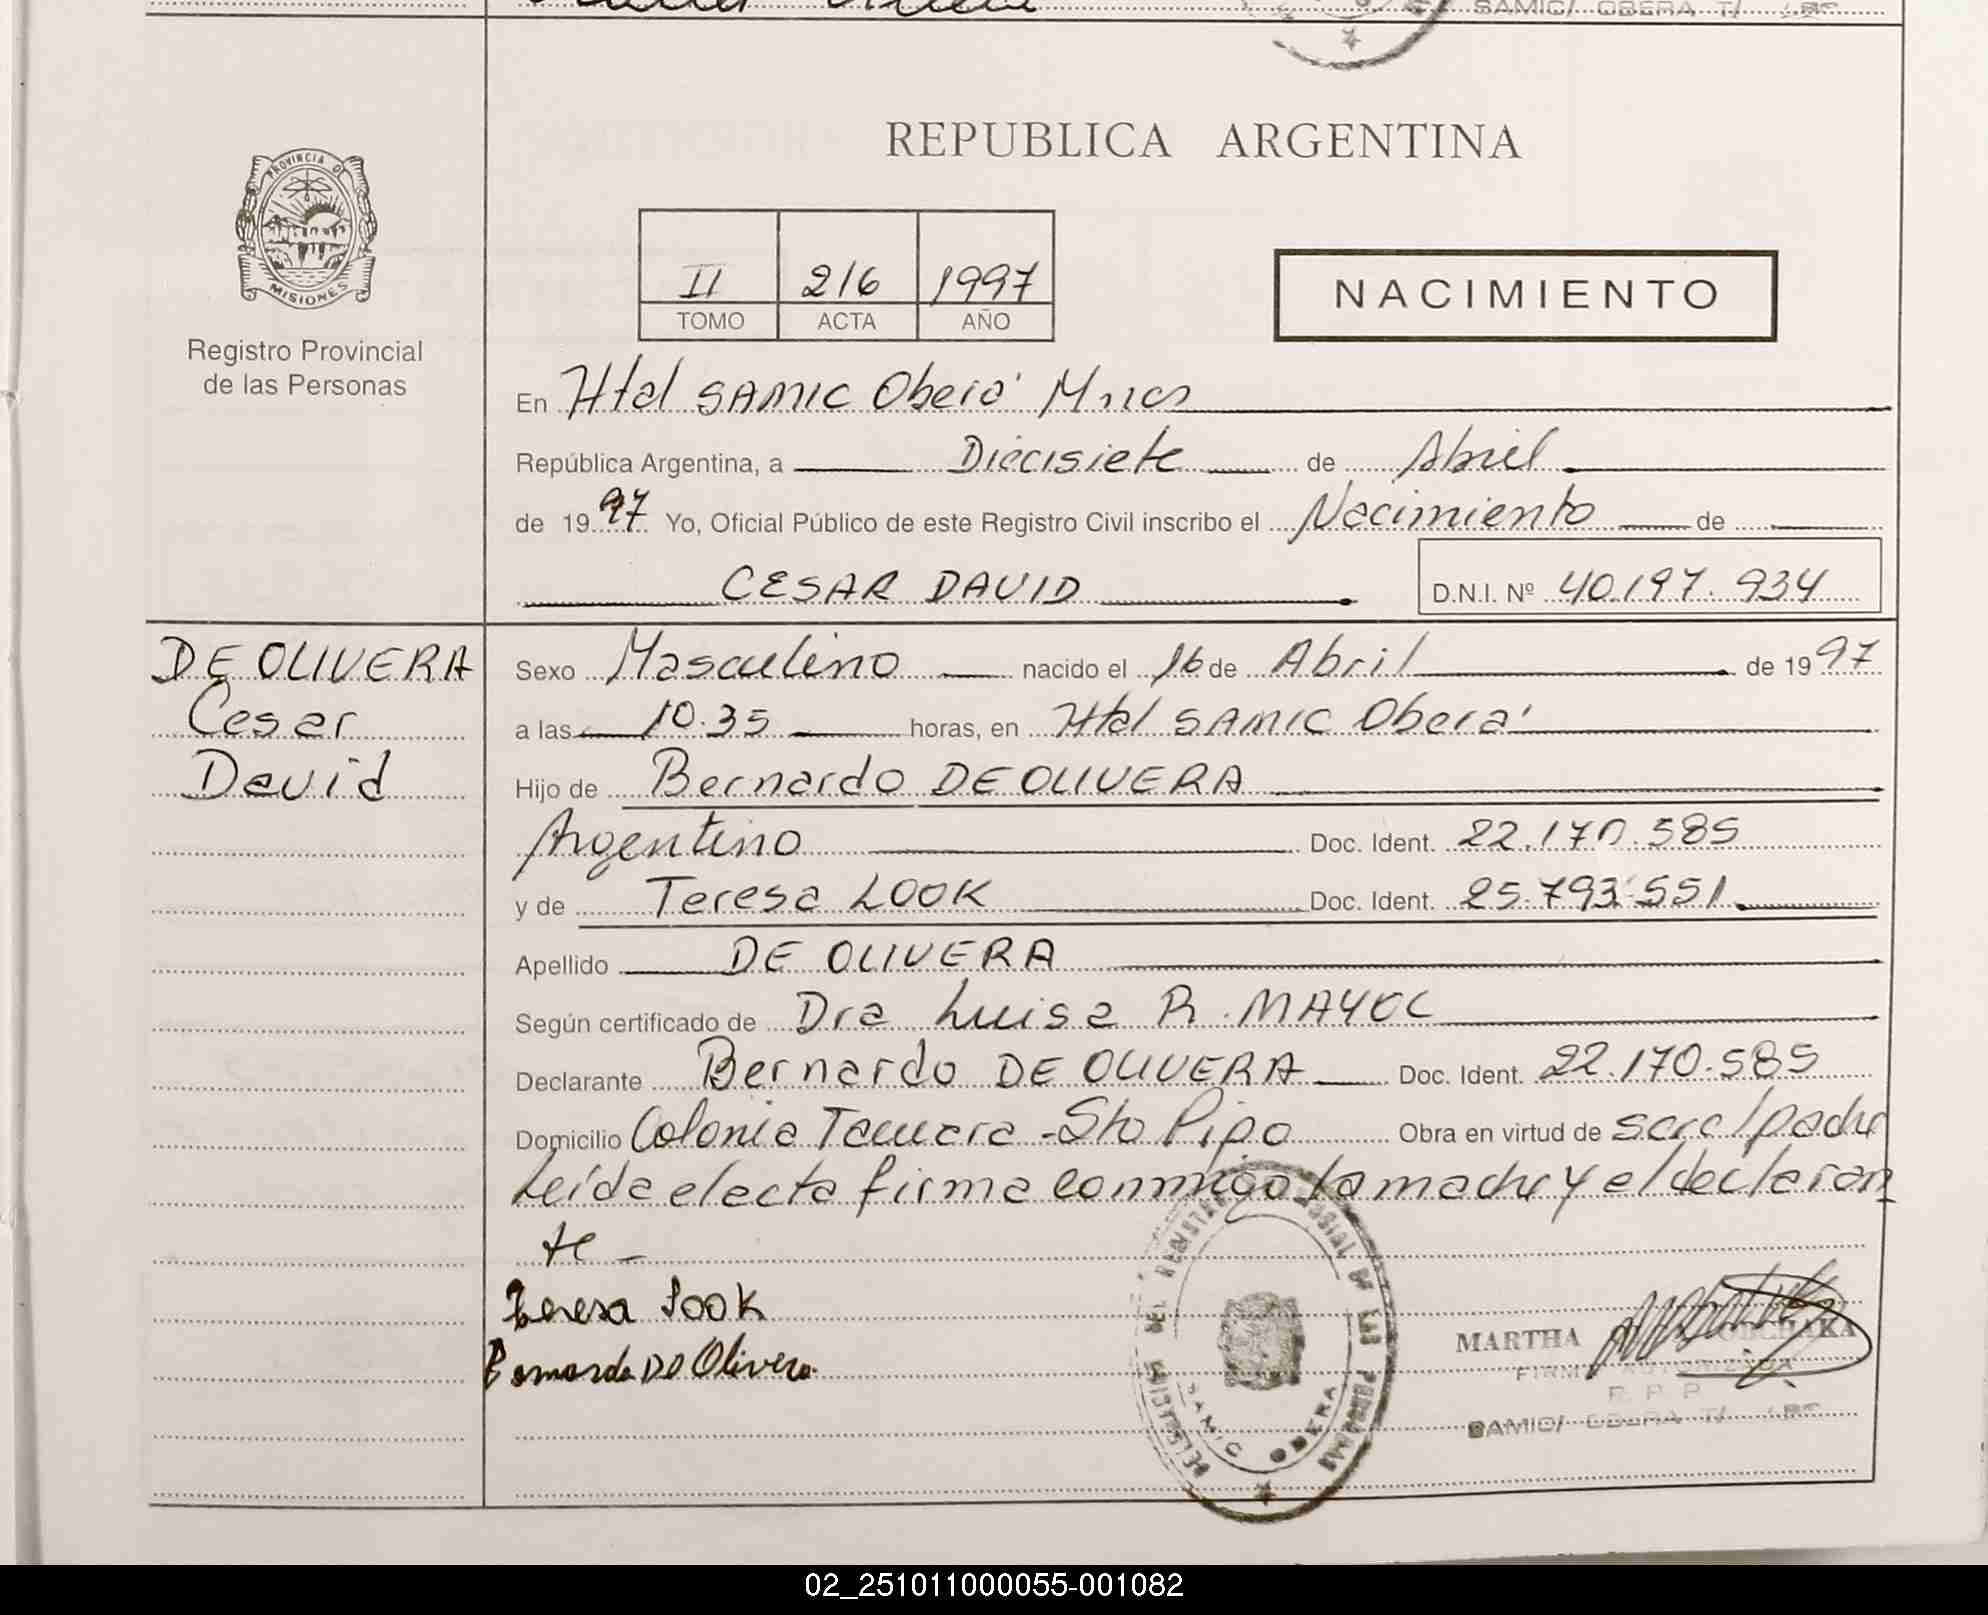 SAMIC/ OBERA T/
REPUBLICA ARGENTINA
PROVINCIA DE
MISIONES
Registro Provincial
de las Personas
II 216 1997
TOMO ACTA AÑO
NACIMIENTO
En Htal SAMIC Oberá Mnes
República Argentina, a Diecisiete de Abril
de 1997 Yo, Oficial Público de este Registro Civil inscribo el Nacimiento de
CESAR DAVID D.N.I. Nº 40.197.934
DE OLIVERA
Cesar
David
Sexo Masculino nacido el 16 de Abril de 1997
a las 10.35 horas, en Htal SAMIC Oberá
Hijo de Bernardo DE OLIVERA
Argentino Doc. Ident. 22.170.585
y de Teresa LOOK Doc. Ident. 25.793.551
Apellido DE OLIVERA
Según certificado de Dra Luisa R. MAYOL
Declarante Bernardo DE OLIVERA Doc. Ident. 22.170.585
Domicilio Colonia Tacuara - Sto Pipo Obra en virtud de ser el padre
Leída el acta firma conmigo la madre y el declaran
te -
Teresa Look
Bernardo De Olivera
MARTHA
FIRMA AUTORIZADA
R. P. P.
SAMIC/ OBERA T/
DELEGACION DEL REGISTRO PROVINCIAL DE LAS PERSONAS
SAMIC OBERA
02_251011000055-001082